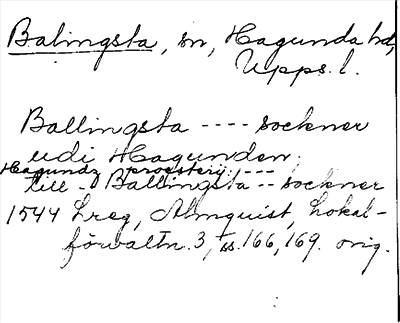 Balingsta, sn, Hagunda hd,
Upps. l.
Ballingsta ---- sockner
udi Hagunden;
Hagundz progsterij: ---
till - Ballingsta -- sockner
1544 Lreg, Almquist, Lokal-
förvaltn. 3, ss. 166, 169. orig.